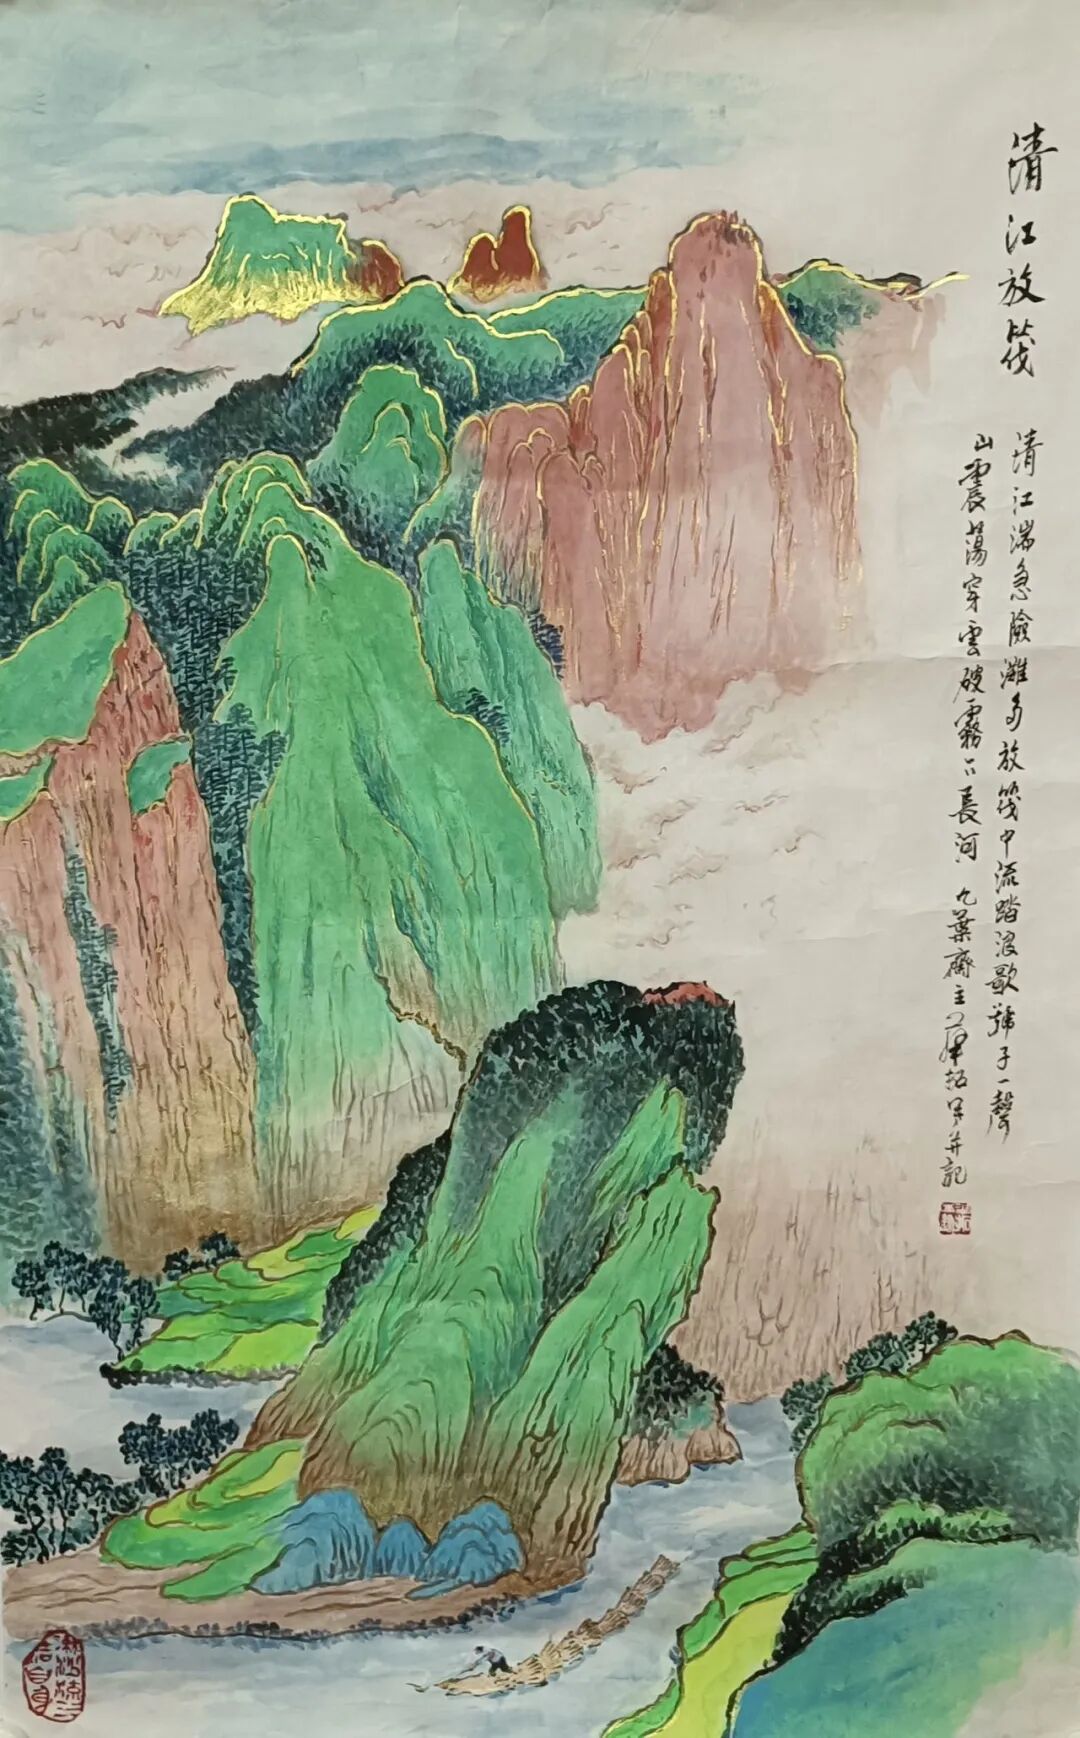 清江放筏
清江湍急險灘多放筏中流踏浪歌號子一聲
山震蕩穿雲破霧下長河 九葉齋主 拓 并記